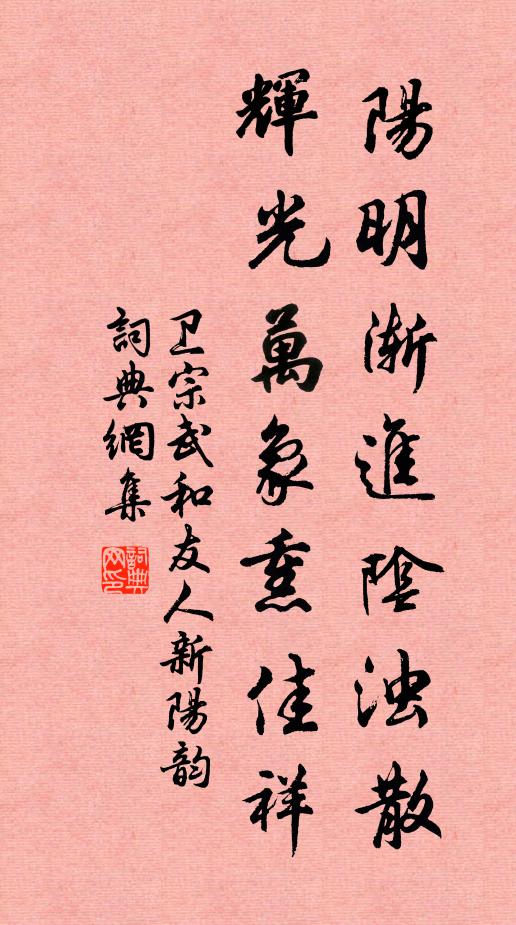 陽明漸進陰浊散
輝光萬象熏佳祥
卫宗武和友人新陽韵
詞典網集
詞典网印